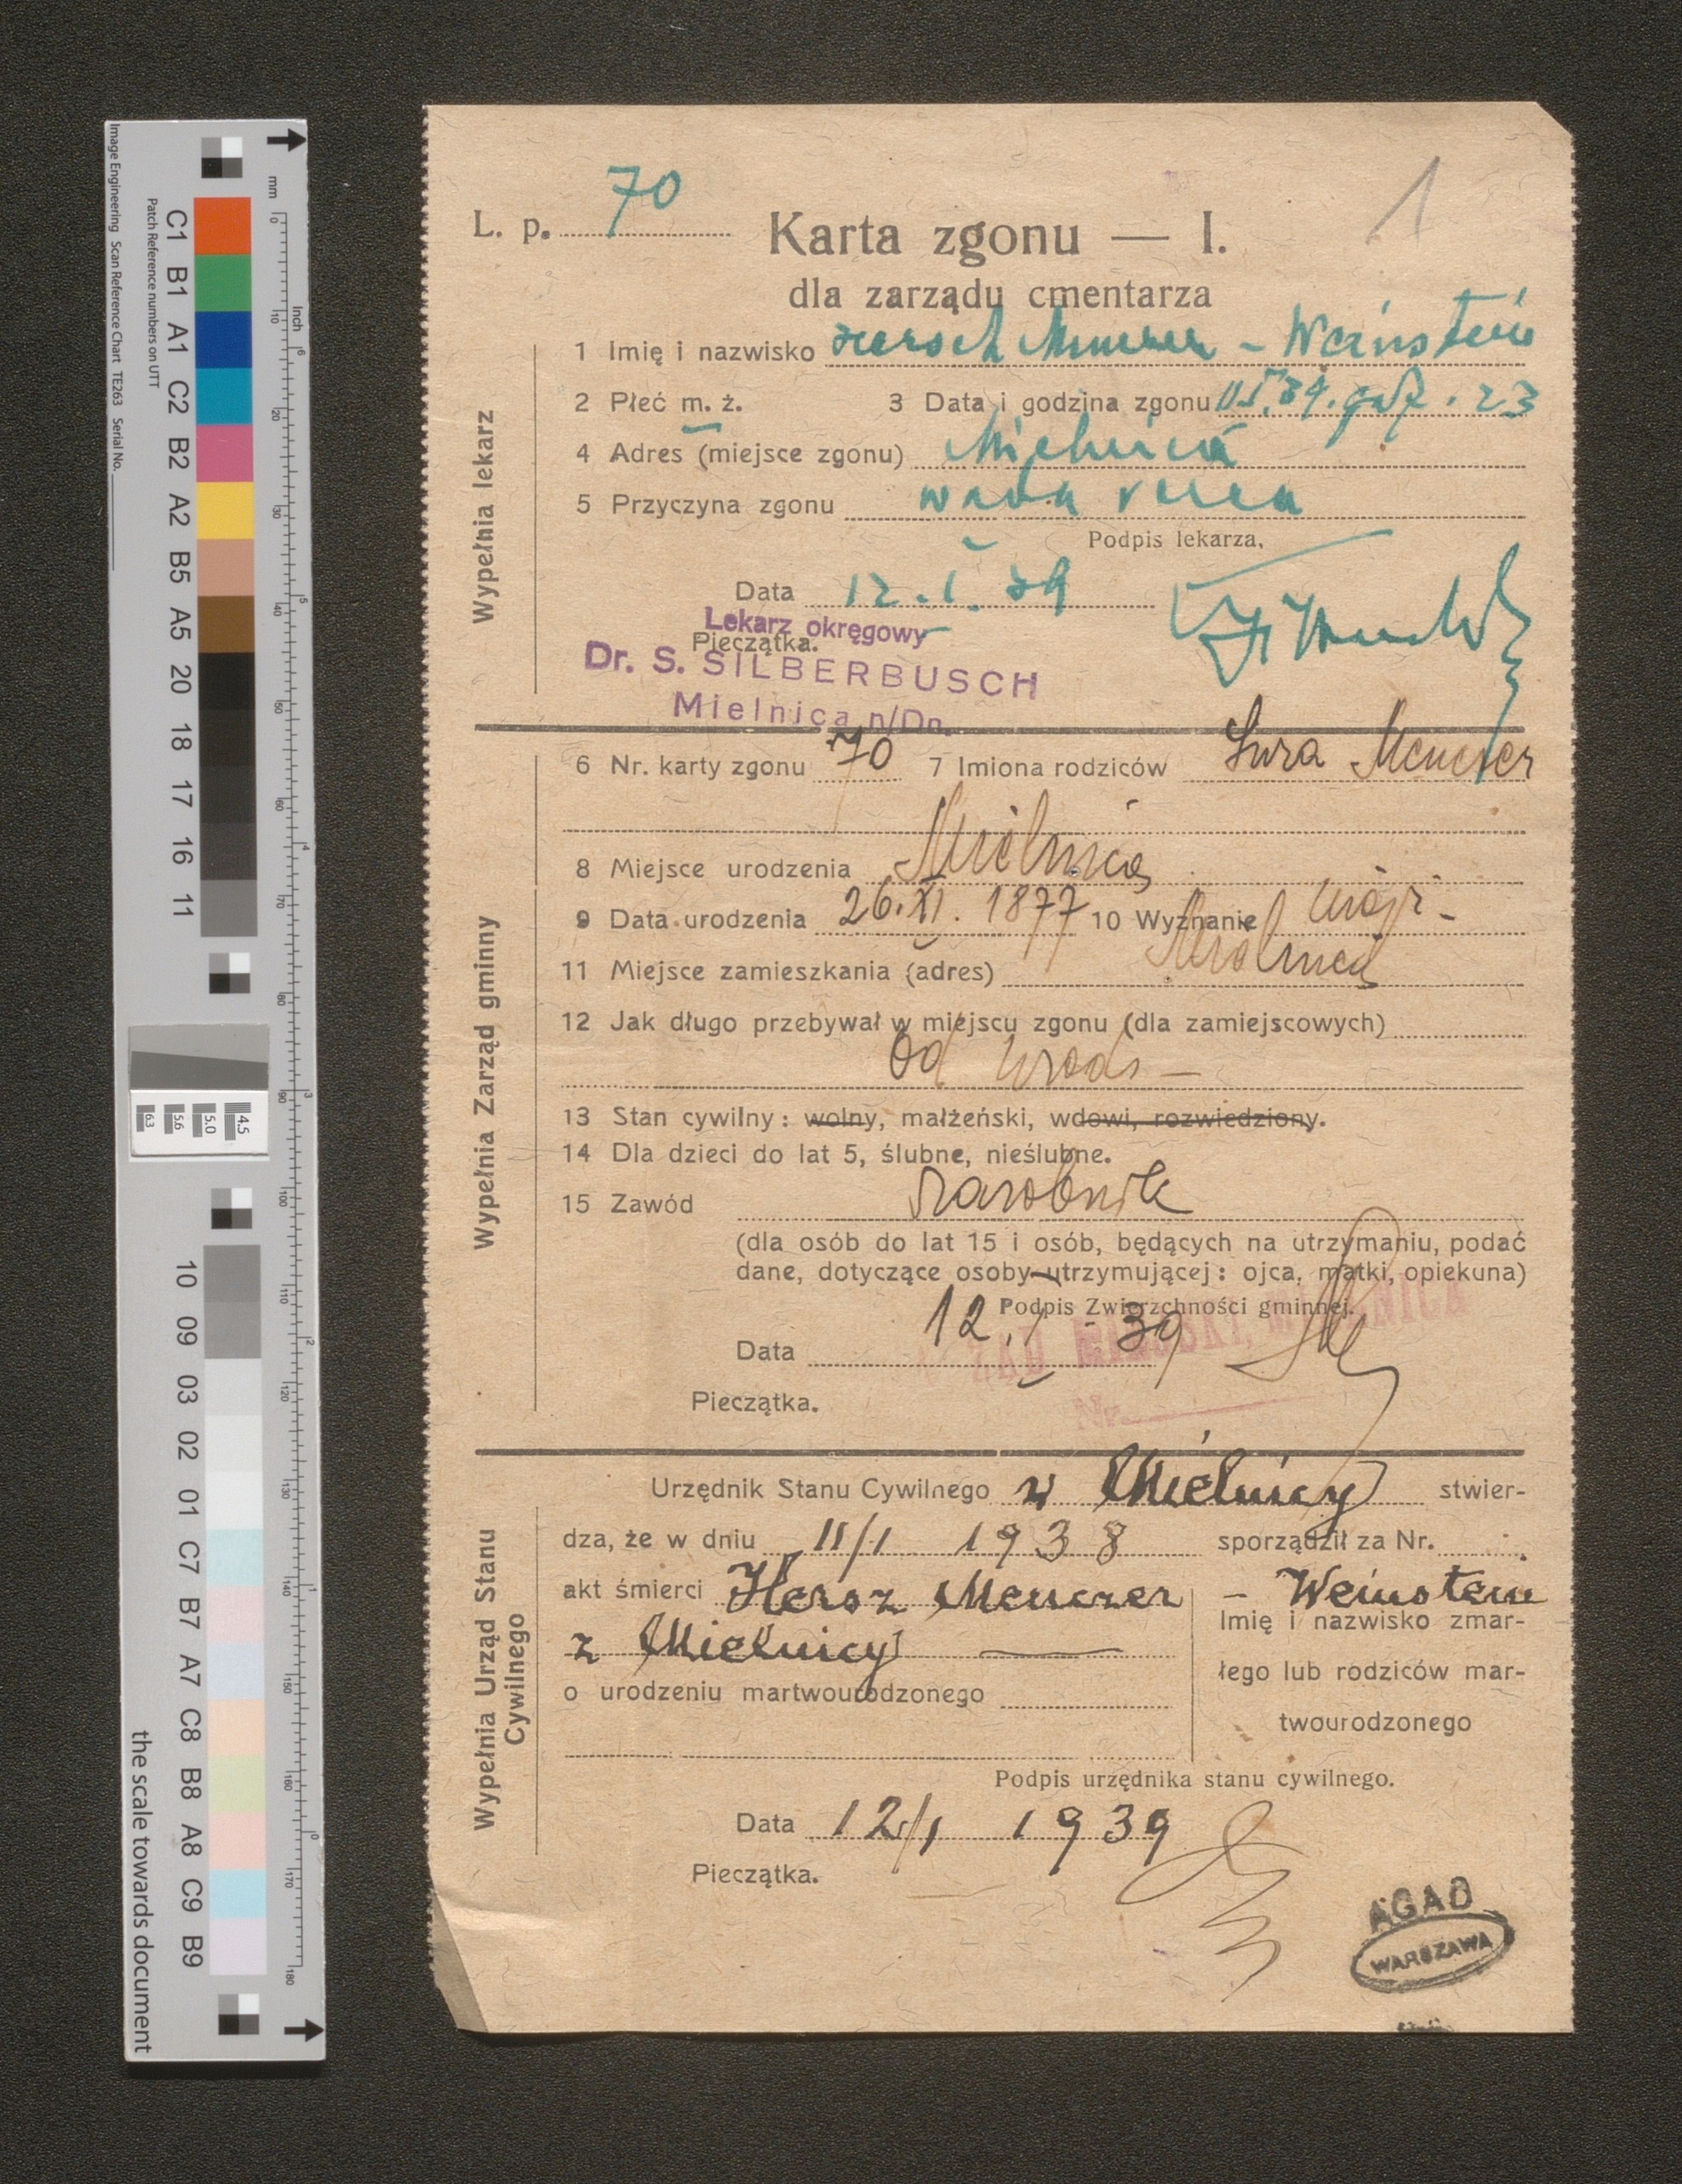 L. p. 70
1
Karta zgonu — I.
dla zarządu cmentarza
Wypełnia lekarz
1 Imię i nazwisko Hersch Menczer - Weinstein
2 Płeć m. ż. 3 Data i godzina zgonu 11.I.39. godz. 23
4 Adres (miejsce zgonu) Mielnica
5 Przyczyna zgonu wada serca
Podpis lekarza,
Data 12.I.39
Lekarz okręgowy
Pieczątka.
Dr. S. SILBERBUSCH
Mielnica n/Dn.
Wypełnia Zarząd gminny
6 Nr. karty zgonu 70 7 Imiona rodziców Sura Menczer
8 Miejsce urodzenia Mielnica
9 Data urodzenia 26.XI. 1877 10 Wyznanie mojż-
11 Miejsce zamieszkania (adres) Mielnica
12 Jak długo przebywał w miejscu zgonu (dla zamiejscowych)
Od urodz —
13 Stan cywilny: wolny, małżeński, wdowi, rozwiedziony.
14 Dla dzieci do lat 5, ślubne, nieślubne.
15 Zawód zarobnik
(dla osób do lat 15 i osób, będących na utrzymaniu, podać
dane, dotyczące osoby utrzymującej: ojca, matki, opiekuna)
Podpis Zwierzchności gminnej.
ZĄD MIEJSKI, MIELNICA
Data 12.I - 39
Nr.
Pieczątka.
Wypełnia Urząd Stanu
Cywilnego
Urzędnik Stanu Cywilnego w Mielnicy stwier-
dza, że w dniu 11/I 1938 sporządził za Nr.
akt śmierci Hersz Menczer - Weinstein
Imię i nazwisko zmar-
z Mielnicy —
łego lub rodziców mar-
o urodzeniu martwourodzonego
twourodzonego
Podpis urzędnika stanu cywilnego.
Data 12/I 1939
Pieczątka.
AGAD
WARSZAWA
Image Engineering Scan Reference Chart TE263 Serial No.
Patch Reference numbers on UTT
C1 B1 A1 C2 B2 A2 B5 A5 20 18 17 16 11
10 09 03 02 01 C7 B7 A7 C8 B8 A8 C9 B9
mm
0 10 20 30 40 50 60 70 80 90 100 110 120 130 140 150 160 170 180
inch
6 5 4 3 2 1 0
4.5
5.0
5.6
6.3
the scale towards document